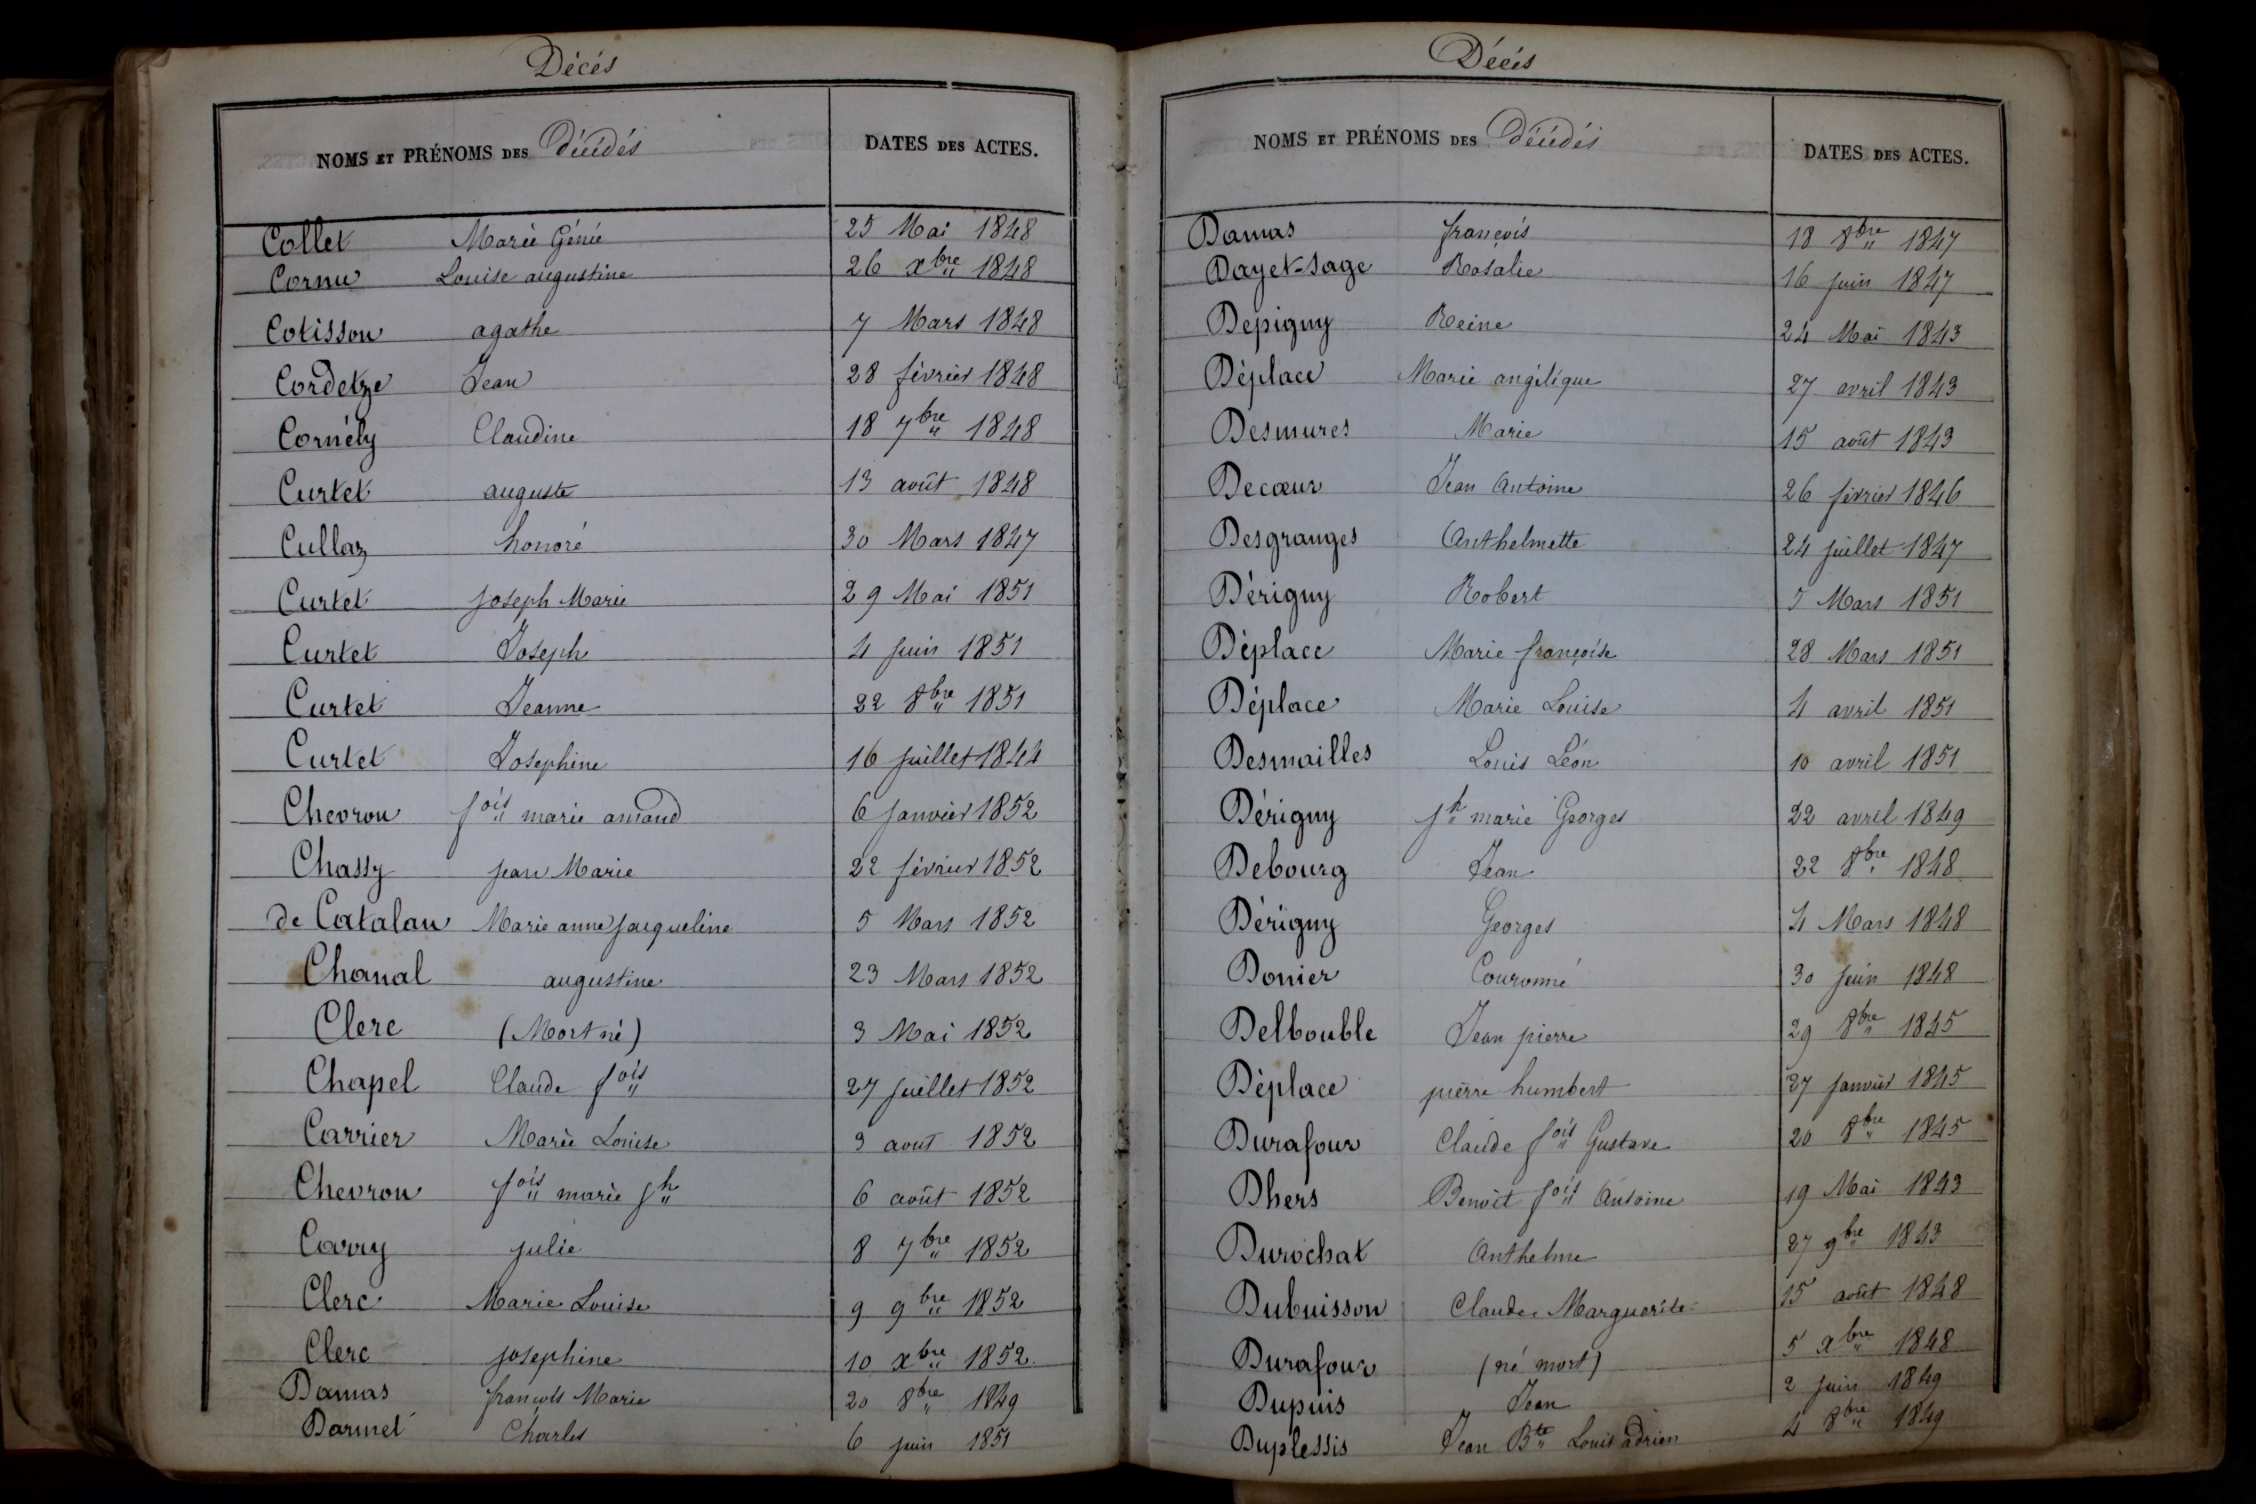 Décés
NOMS ET PRÉNOMS DES Décédés DATES DES ACTES.
Collet Marie Génie 25 Mai 1848
Cornu Louise augustine 26 xbre 1848
Cotisson agathe 7 Mars 1848
Cordetze Jean 28 février 1848
Cornély Claudine 18 7bre 1848
Curtet auguste 13 août 1848
Cullaz honoré 30 Mars 1847
Curtet joseph Marie 29 Mai 1851
Curtet Joseph 4 juin 1851
Curtet Jeanne 22 8bre 1851
Curtet Josephine 16 juillet 1844
Chevron fois marie amand 6 janvier 1852
Chassy jean Marie 22 février 1852
de Catalan Marie anne jacqueline 5 Mars 1852
Chanal augustine 23 Mars 1852
Clerc (Mort né) 3 Mai 1852
Chapel Claude fois 27 juillet 1852
Carrier Marie Louise 3 aout 1852
Chevron fois marie jh 6 août 1852
Carry julie 8 7bre 1852
Clerc Marie Louise 9 9bre 1852
Clerc josephine 10 xbre 1852
Damas françois Marie 20 8bre 1849
Darmet Charles 6 juin 1851
Décés
NOMS ET PRÉNOMS DES Décédés DATES DES ACTES.
Damas françois 18 8bre 1847
Dayet-Sage Rosalie 16 juin 1847
Depigny Reine 24 Mai 1843
Déplace Marie angélique 27 avril 1843
Desmures Marie 15 août 1843
Decœur Jean Antoine 26 février 1846
Desgranges Anthelmette 24 juillet 1847
Dérigny Robert 5 Mars 1851
Déplace Marie françoise 28 Mars 1851
Déplace Marie Louise 4 avril 1851
Desmailles Louis Léon 10 avril 1851
Dérigny jh marie Georges 22 avril 1849
Debourg Jean 22 8bre 1848
Dérigny Georges 4 Mars 1848
Donier Couronné 30 juin 1848
Delbouble Jean pierre 29 8bre 1845
Déplace pierre humbert 27 janvier 1845
Durafour Claude fois Gustave 20 8bre 1845
Dhers Benoit fois Antoine 19 Mai 1843
Durochat Anthelme 27 9bre 1843
Dubuisson Claude Marguerite 15 août 1848
Durafour (né mort) 5 xbre 1848
Dupuis Jean 2 juin 1849
Duplessis Jean Bte Louis adrien 4 8bre 1849